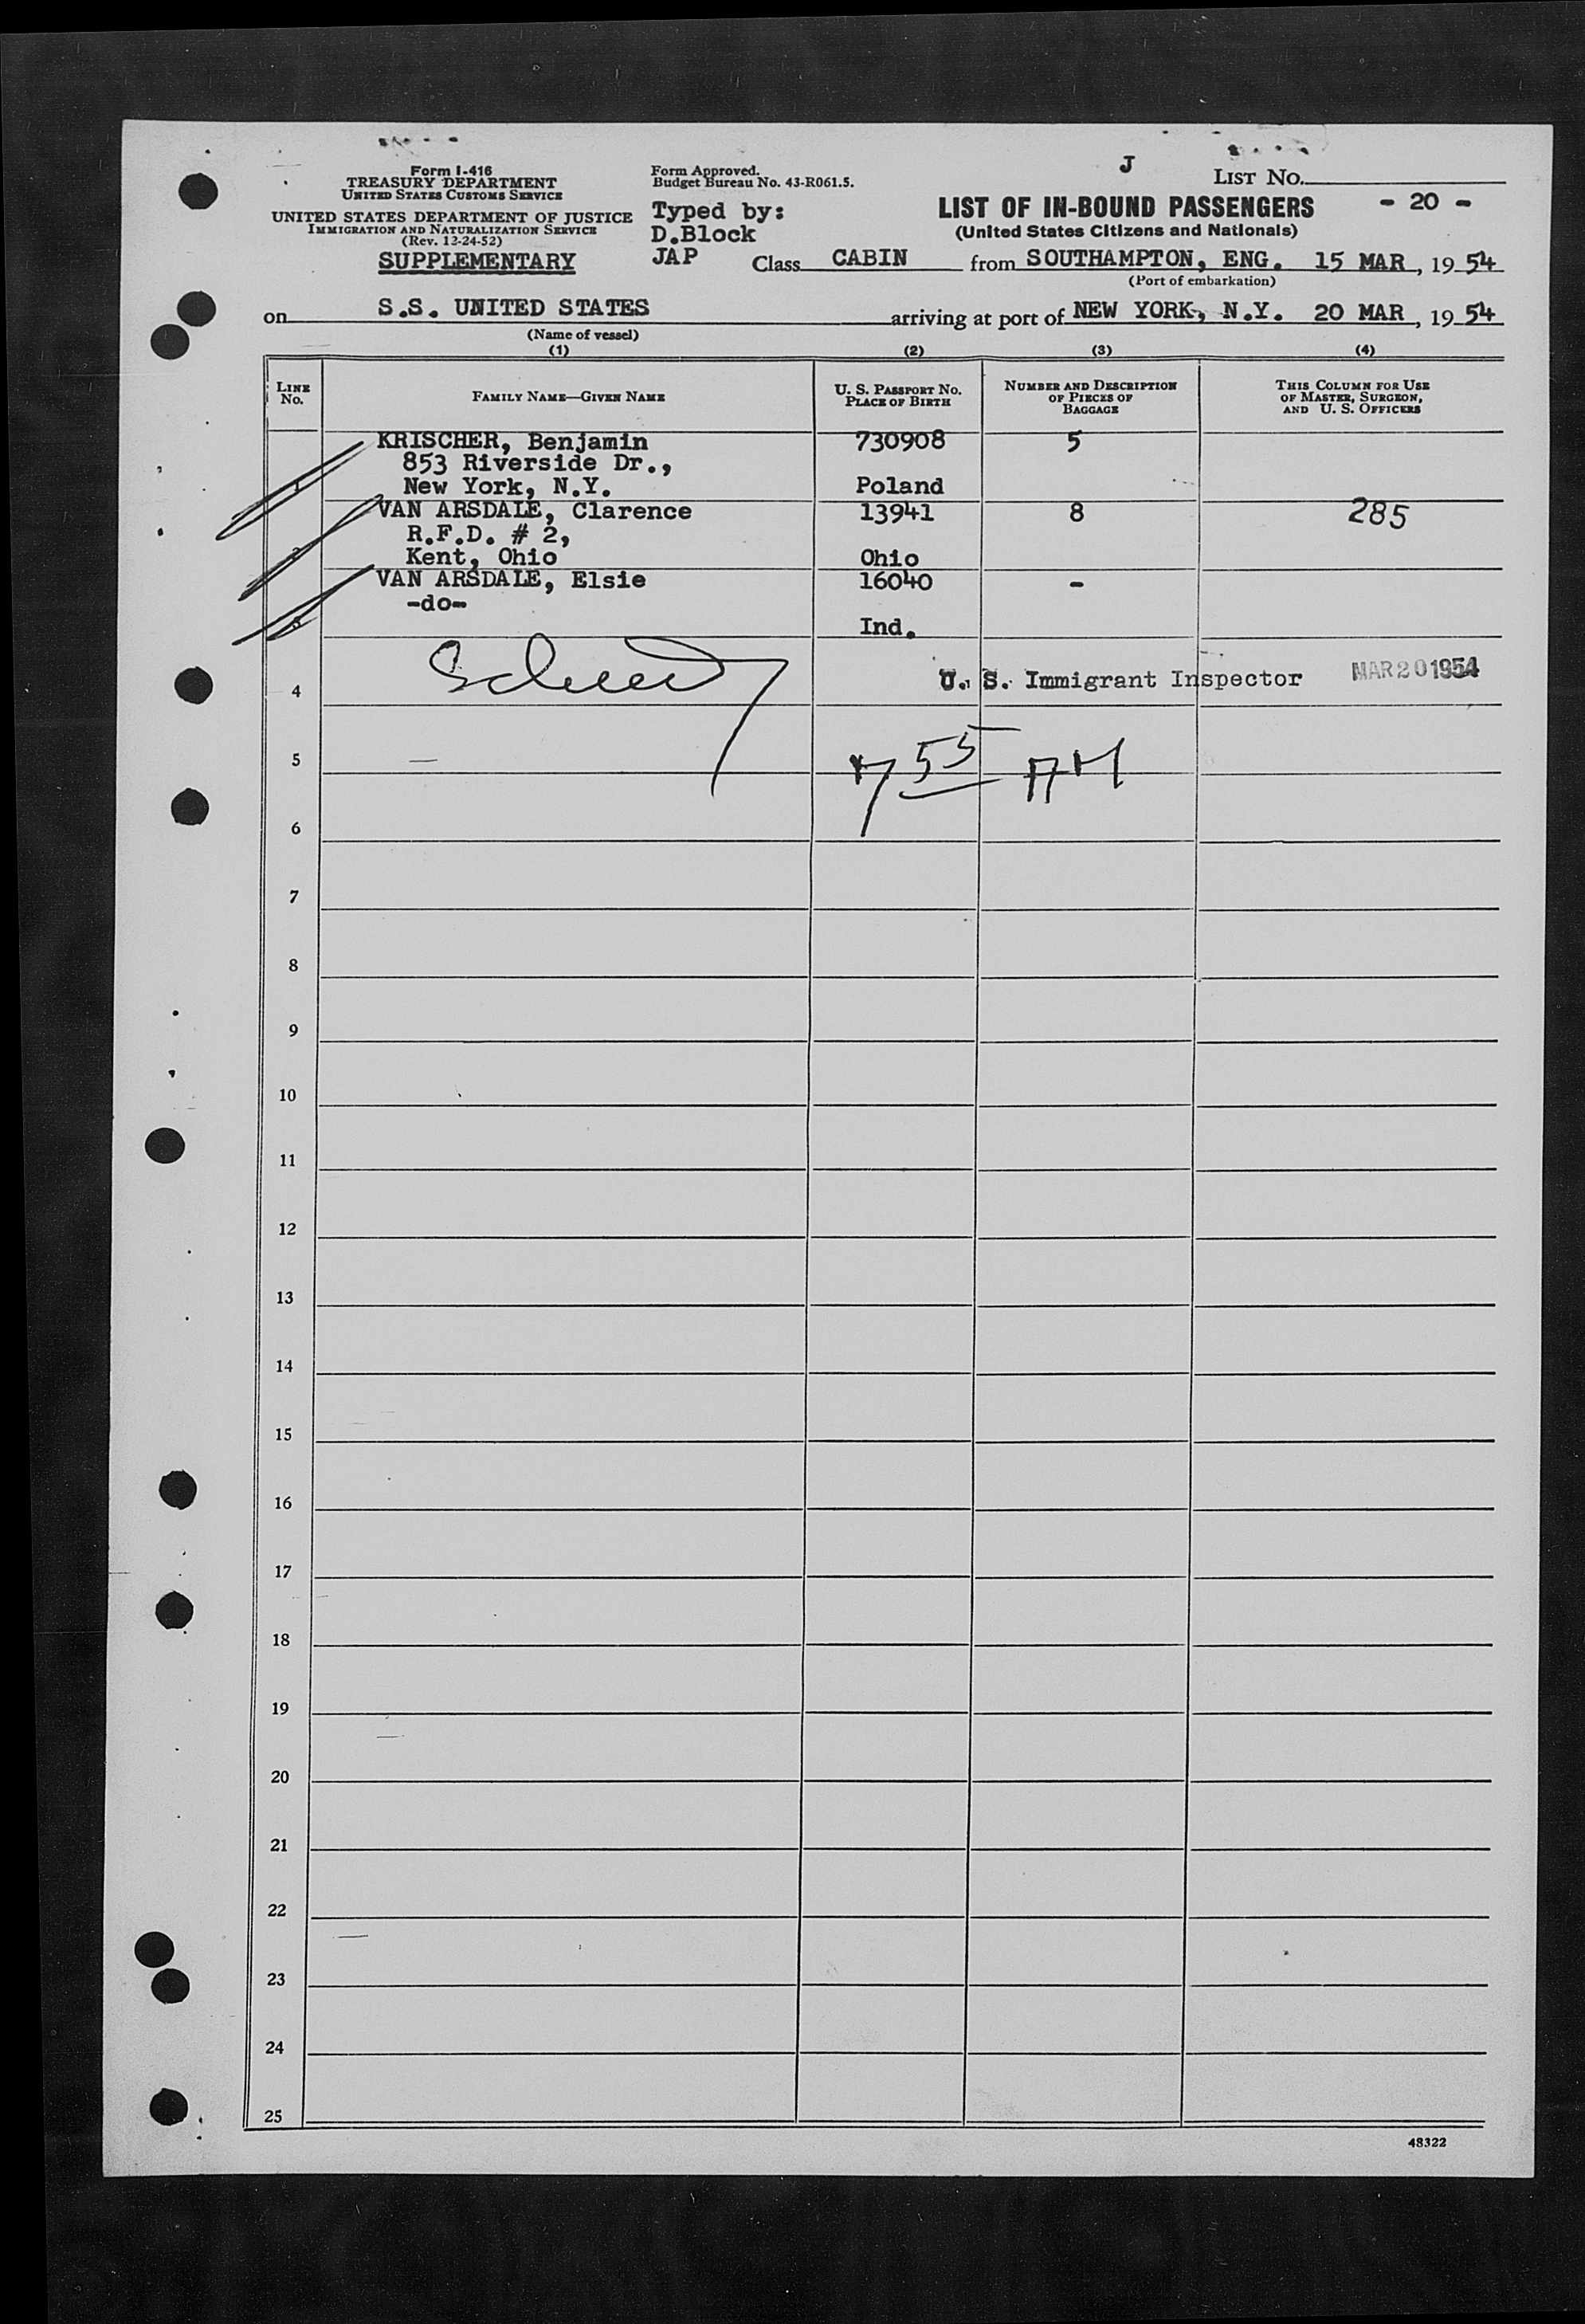 Form I-416
TREASURY DEPARTMENT
UNITED STATES CUSTOMS SERVICE
UNITED STATES DEPARTMENT OF JUSTICE
IMMIGRATION AND NATURALIZATION SERVICE
(Rev. 12-24-52)
SUPPLEMENTARY
Form Approved.
Budget Bureau No. 43-R061.5.
Typed by:
D.Block
JAP
J
LIST NO.
LIST OF IN-BOUND PASSENGERS - 20 -
(United States Citizens and Nationals)
Class CABIN from SOUTHAMPTON, ENG. 15 MAR, 1954
(Port of embarkation)
on S.S. UNITED STATES arriving at port of NEW YORK, N.Y. 20 MAR, 1954
(Name of vessel)
(1) (2) (3) (4)
LINE NO.
FAMILY NAME—GIVEN NAME
U. S. PASSPORT NO.
PLACE OF BIRTH
NUMBER AND DESCRIPTION
OF PIECES OF
BAGGAGE
THIS COLUMN FOR USE
OF MASTER, SURGEON,
AND U. S. OFFICERS
KRISCHER, Benjamin 730908 5
853 Riverside Dr.,
1 New York, N.Y. Poland
VAN ARSDALE, Clarence 13941 8 285
R.F.D. # 2,
2 Kent, Ohio Ohio
VAN ARSDALE, Elsie 16040 -
-do-
3 Ind.
4 U. S. Immigrant Inspector MAR 20 1954
5 7 55 AM
6
7
8
9
10
11
12
13
14
15
16
17
18
19
20
21
22
23
24
25
48322